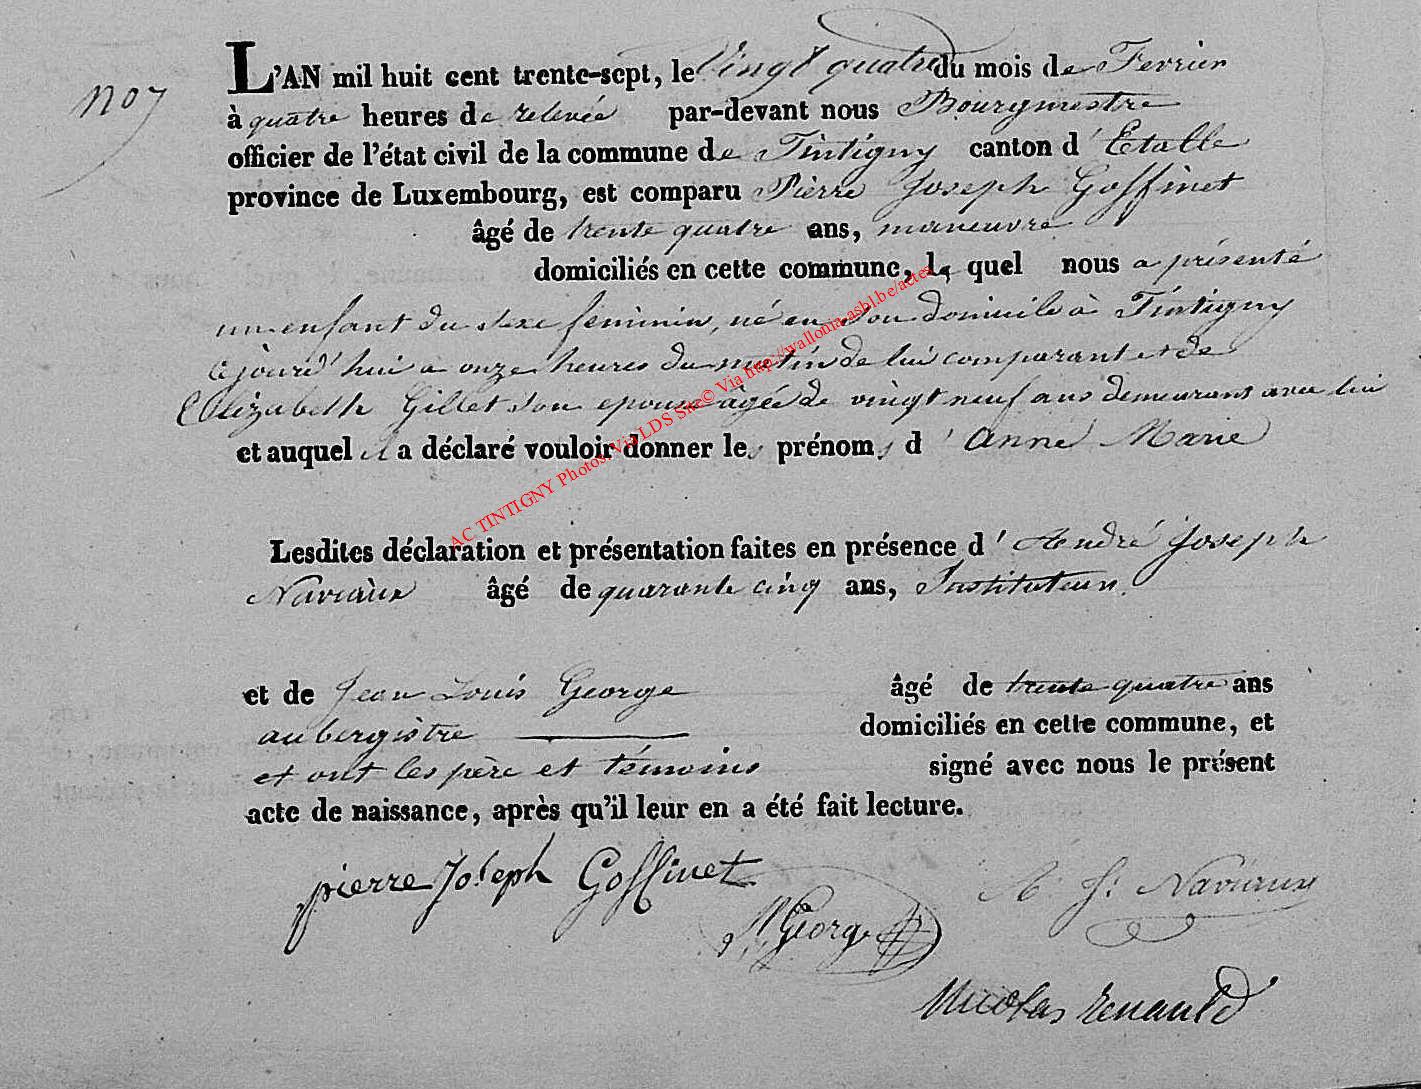 No 7
L'AN mil huit cent trente-sept, le Vingt quatre du mois de Fevrier
à quatre heures de relevée par-devant nous Bourgmestre
officier de l'état civil de la commune de Tintigny canton d'Etalle
province de Luxembourg, est comparu Pierre Joseph Goffinet
âgé de trente quatre ans, maneuvre
domiciliés en cette commune, le quel nous a présenté
un enfant du sexe feminin, né en son domicile à Tintigny
cejourd'hui a onze heures du matin de lui comparant et de
Elizabeth Gillet son epouse âgée de vingt neuf ans demeurant avec lui
et auquel il a déclaré vouloir donner les prénoms d'Anne Marie
AC TINTIGNY Photos Via LDS Site© Via http://wallonia-asbl.be/actes
Lesdites déclaration et présentation faites en présence d'André Joseph
Naviaux âgé de quarante cinq ans, Instituteur.
et de Jean Louis George âgé de trente quatre ans
aubergistre domiciliés en cette commune, et
et ont les père et témoins signé avec nous le présent
acte de naissance, après qu'il leur en a été fait lecture.
pierre Joseph Goffinet
George
A. J. Naviaux
Nicolas Renauld